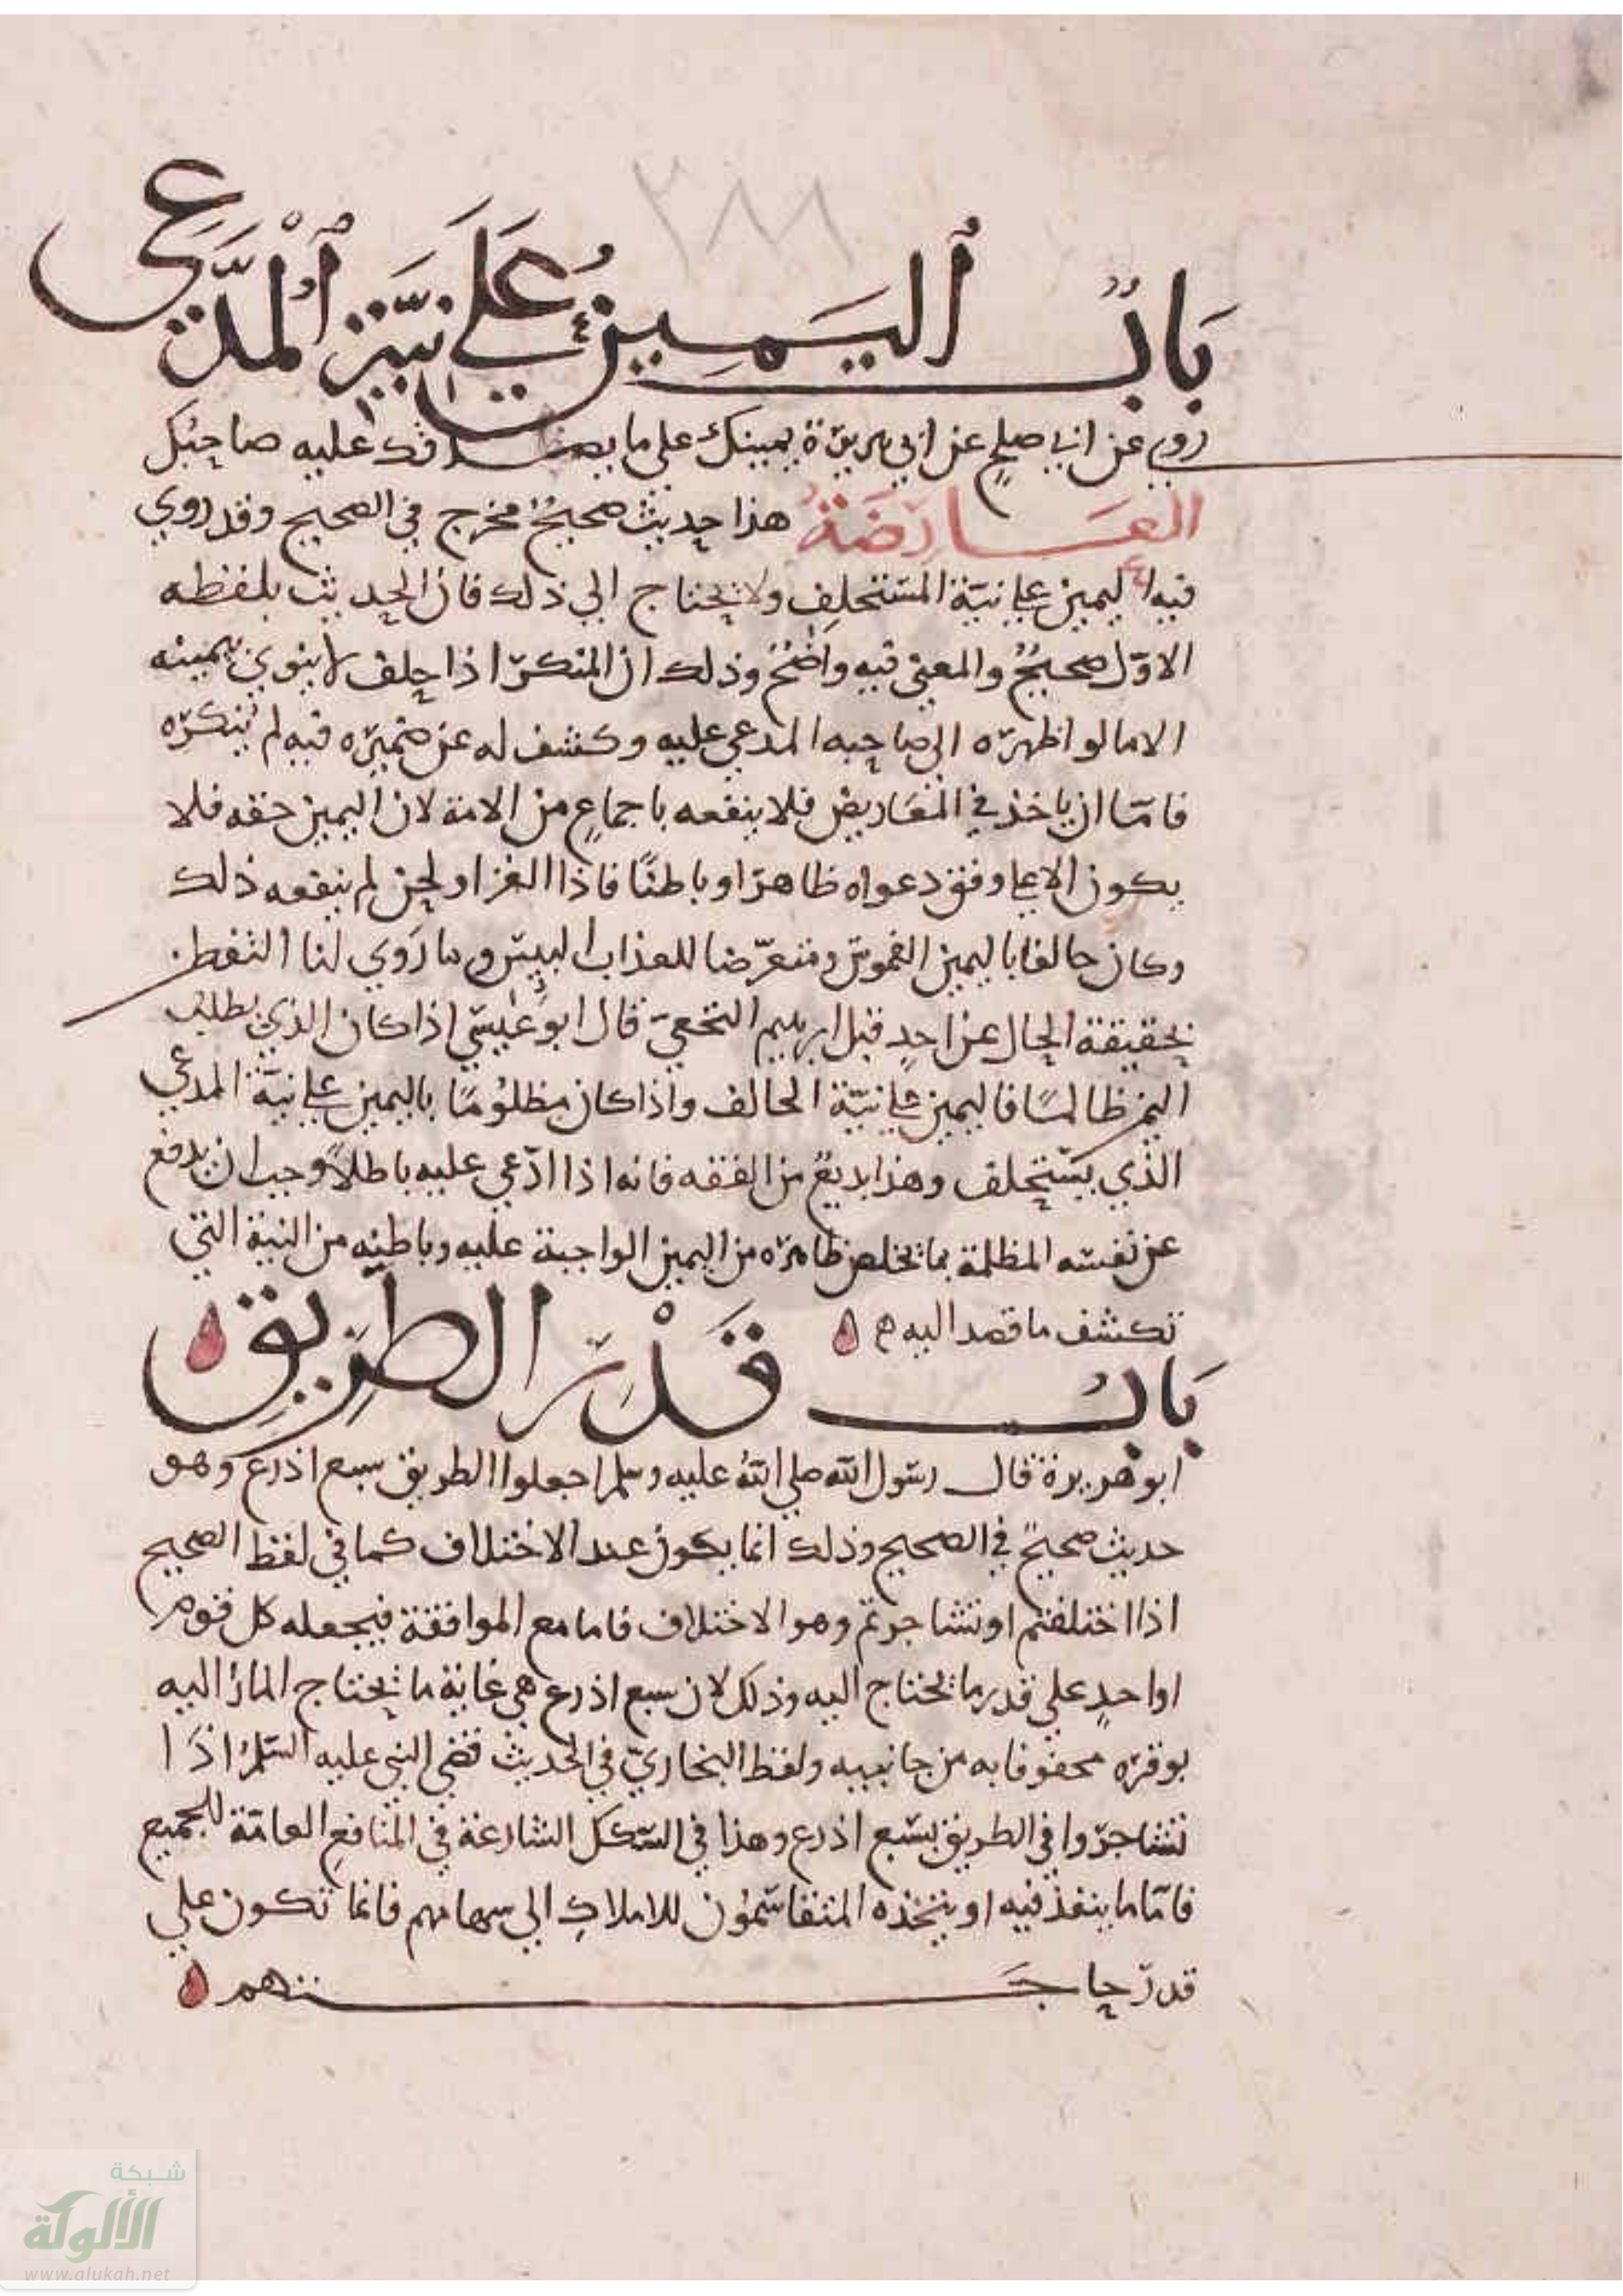 ٢٨٨
بَابُ ٱليَمِينِ عَلَى نِيَّةِ ٱلْمُدَّعِي
روي عن ابي صلح عن ابي هريرة يمينك على ما يصدقك عليه صاحبك
العَارِضَةُ هذا حديث صحيح مخرج في الصحيح وقد روي
فيه اليمين على نيّة المستحلِف ولا يحتاج الي ذلك فان الحديث بلفظه
الاوّل صحيحٌ والمعنى فيه واضحٌ وذلك ان المنكر اذا حلف لا ينوي بيمينه
الا ما لو اظهره الى صاحبه المدعي عليه وكشف له عن ضميره فيه لم ينكره
فامّا ان ياخذ في المعَاريض فلا ينفعه باجماعٍ من الامة لان اليمين حقه فلا
يكون الا على وفق دعواه ظاهرًا وباطنًا فاذا الغز او لحن لم ينفعه ذلك
وكان حالفا باليمين الغموس ومتعرّضا للعذاب البيس وما رَوي لنا التفطن
بحقيقة الحال عن احدٍ قبل ابرهيم النخعي قال ابو عيسى اذا كان الذي يطلب
اليمين ظالمًا فاليمين على نيّة الحالف واذا كان مظلُومًا باليمين على نيّة المدعي
الذي يستحلف وهذا بديعٌ من الفقه فانه اذا ادّعي عليه باطلاً وجب ان يدفع
عن نفسه المظلمة بما يخلص ظاهره من اليمين الواجبة عليه وباطنه من النية التي
تكشف ما قصد اليه ه
بَابُ قَدْرِ الطَّرِيقِ
ابو هريرة قال رسول الله صلي الله عليه وسلم اجعلوا الطريق سبع اذرع وهو
حديث صحيح في الصحيح وذلك انما يكون عند الاختلاف كما في لفظ الصحيح
اذا اختلفتم او تشاجرتم وهو الاختلاف فاما مع الموافقة فيجعله كل قوم
او احدٍ على قدر ما يحتاج اليه وذلك لان سبع اذرع هي غاية ما يحتاج المارُ اليه
بوقره محفوفا به من جانبيه ولفظ البخاريّ في الحديث قضي النبي عليه السلم اذَا
تشاجروا في الطريق بسبع اذرع وهذا في السكك الشارعة في المنافع العامّة للجميع
فامّا ما ينفذ فيه او يتخذه المتقاسمون للاملاك الي سهامهم فانما تكون على
قدر حاجَتهم
شبكة
الألوكة
www.alukah.net